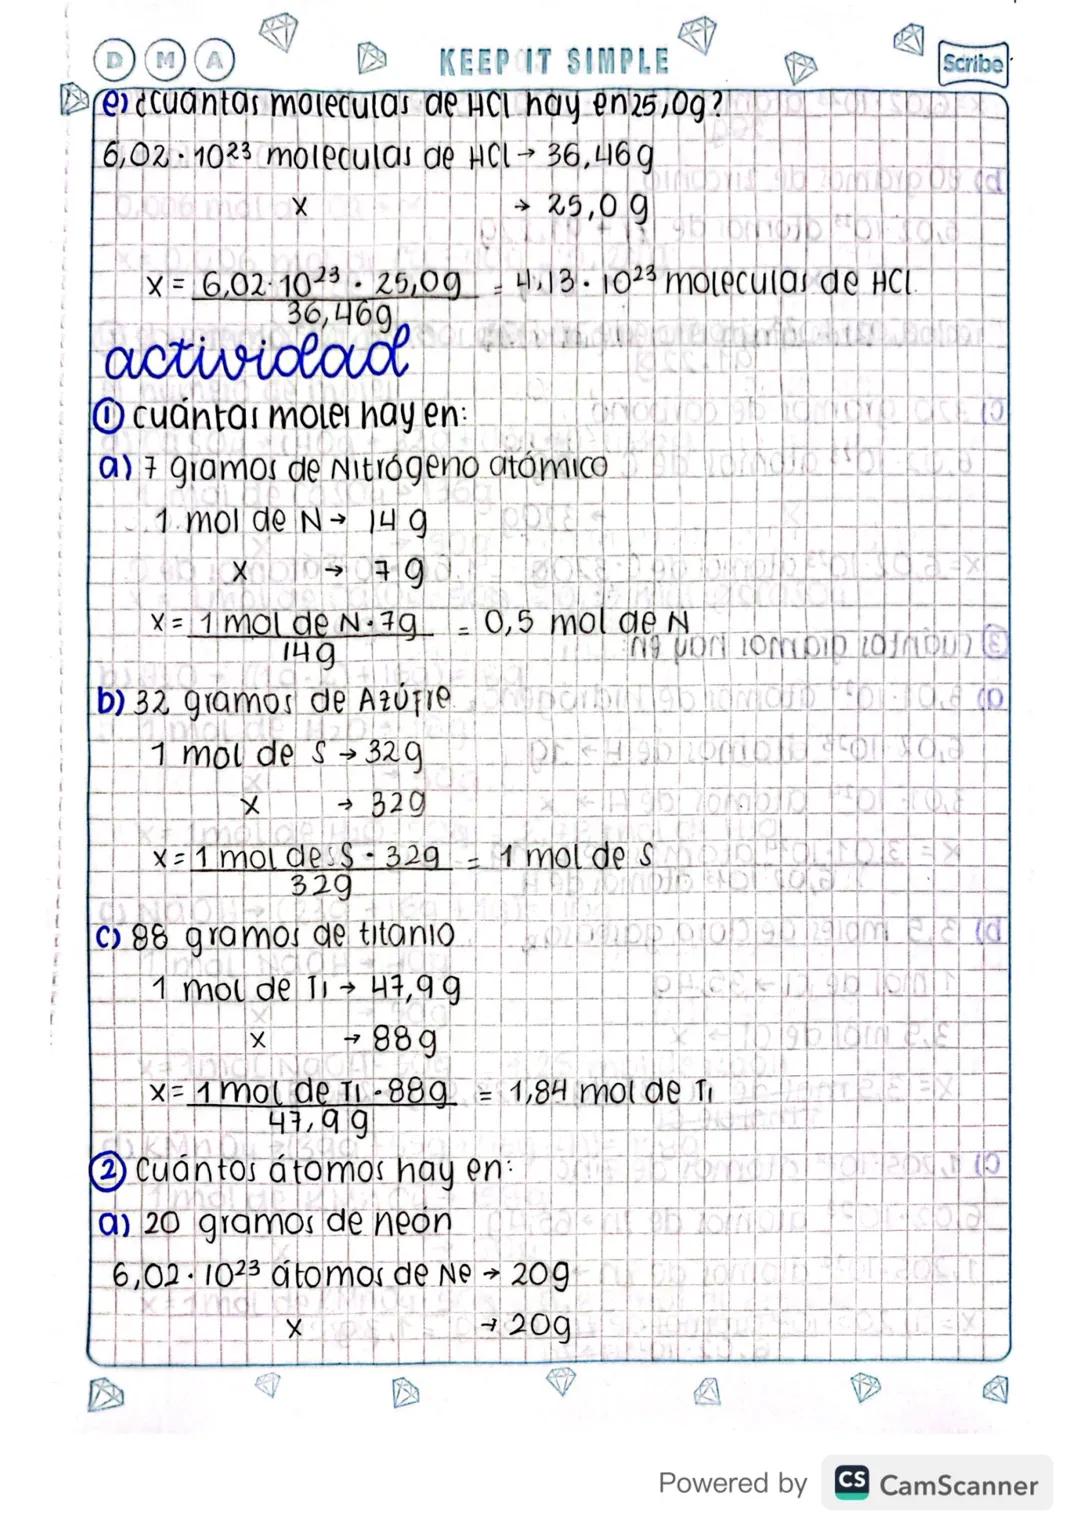 D M A KEEP IT SIMPLE Scribe
e) ¿cuántas moleculas de HCl hay en 25,0g?
6,02 · 10²³ moleculas de HCl → 36,46g
x → 25,0 g
x = 6,02 · 10²³ · 25,0g = 4,13 · 10²³ moleculas de HCl.
36,46g
actividad
① cuántas moles hay en:
a) 7 gramos de Nitrógeno atómico
1 mol de N → 14 g
x → 7 g
x = 1 mol de N · 7g = 0,5 mol de N
14g
b) 32 gramos de Azúfre
1 mol de S → 32g
x → 32g
x = 1 mol de S · 32g = 1 mol de S
32g
c) 88 gramos de titanio
1 mol de Ti → 47,9g
x → 88g
x = 1 mol de Ti · 88g = 1,84 mol de Ti
47,9g
② Cuántos átomos hay en:
a) 20 gramos de neón
6,02 · 10²³ átomos de Ne → 20g
x → 20g
Powered by CS CamScanner